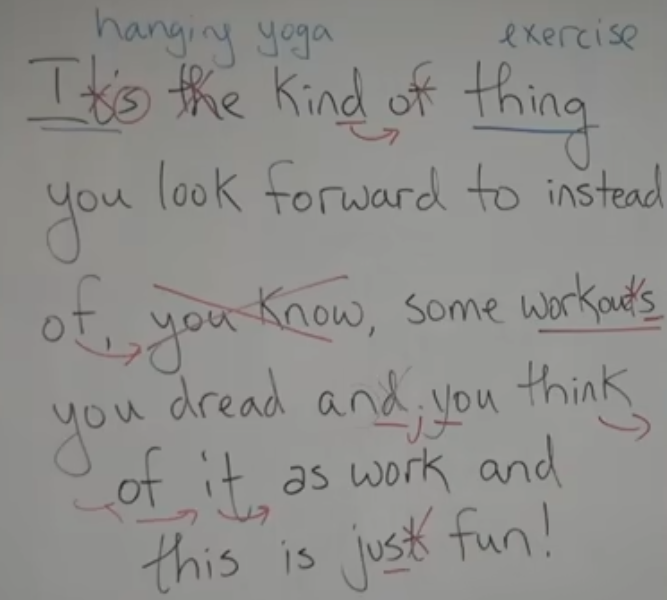 hanging yoga exercise
It's the kind of thing
you look forward to instead
of, you know, some workouts
you dread and you think
of it as work and
this is just fun!